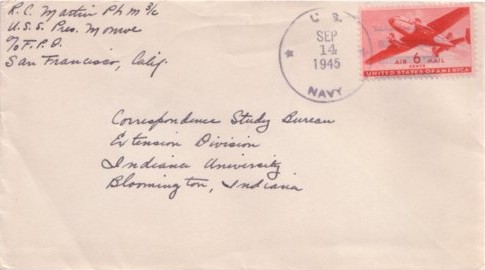 R.C. Martin Ph M 3/c
U.S.S. Pres. Monroe
℅ F.P.O.
San Francisco, Calif.
U. S.
SEP
14
1945
NAVY
AIR 6 MAIL
CENTS
UNITED STATES OF AMERICA
Correspondence Study Bureau
Extension Division
Indiana University
Bloomington, Indiana